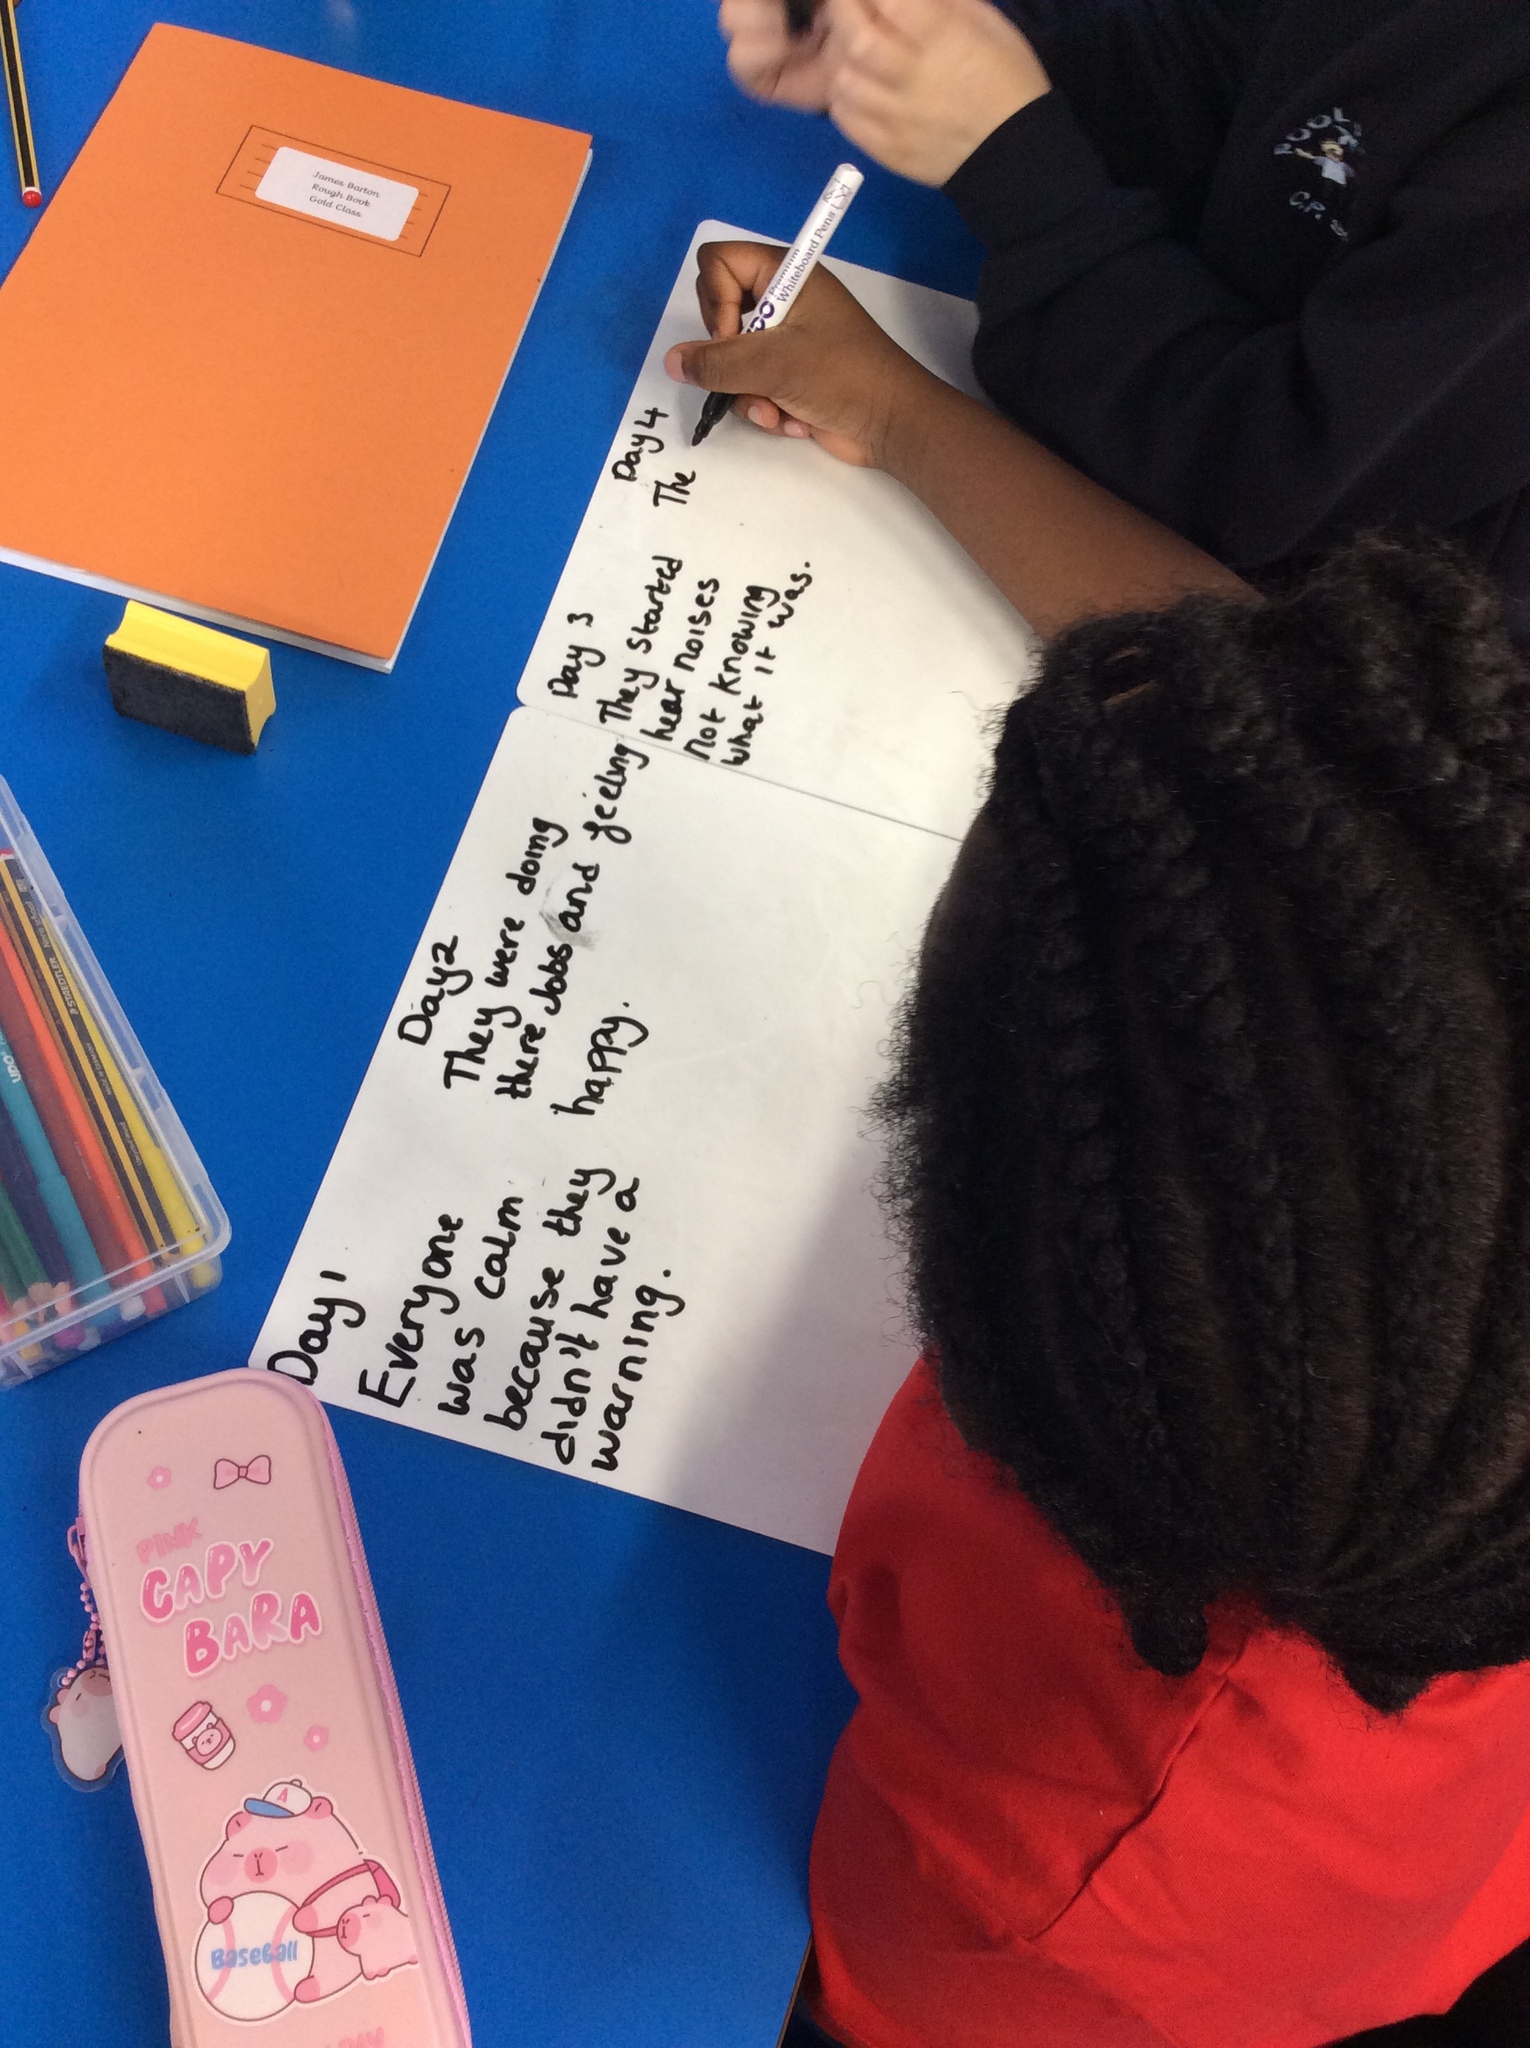 Day 1
Everyone
was calm
because they
didn't have a
warning.
Day2
They were doing
there Jobs and feeling
happy.
Day 3
They started
hear noises
not knowing
what it was.
Day 4
The
James Barton
Rough Book
Gold Class
Premium
Whiteboard Pens
C.P.
STAEDTLER
PINK
CAPY
BARA
A
Baseball